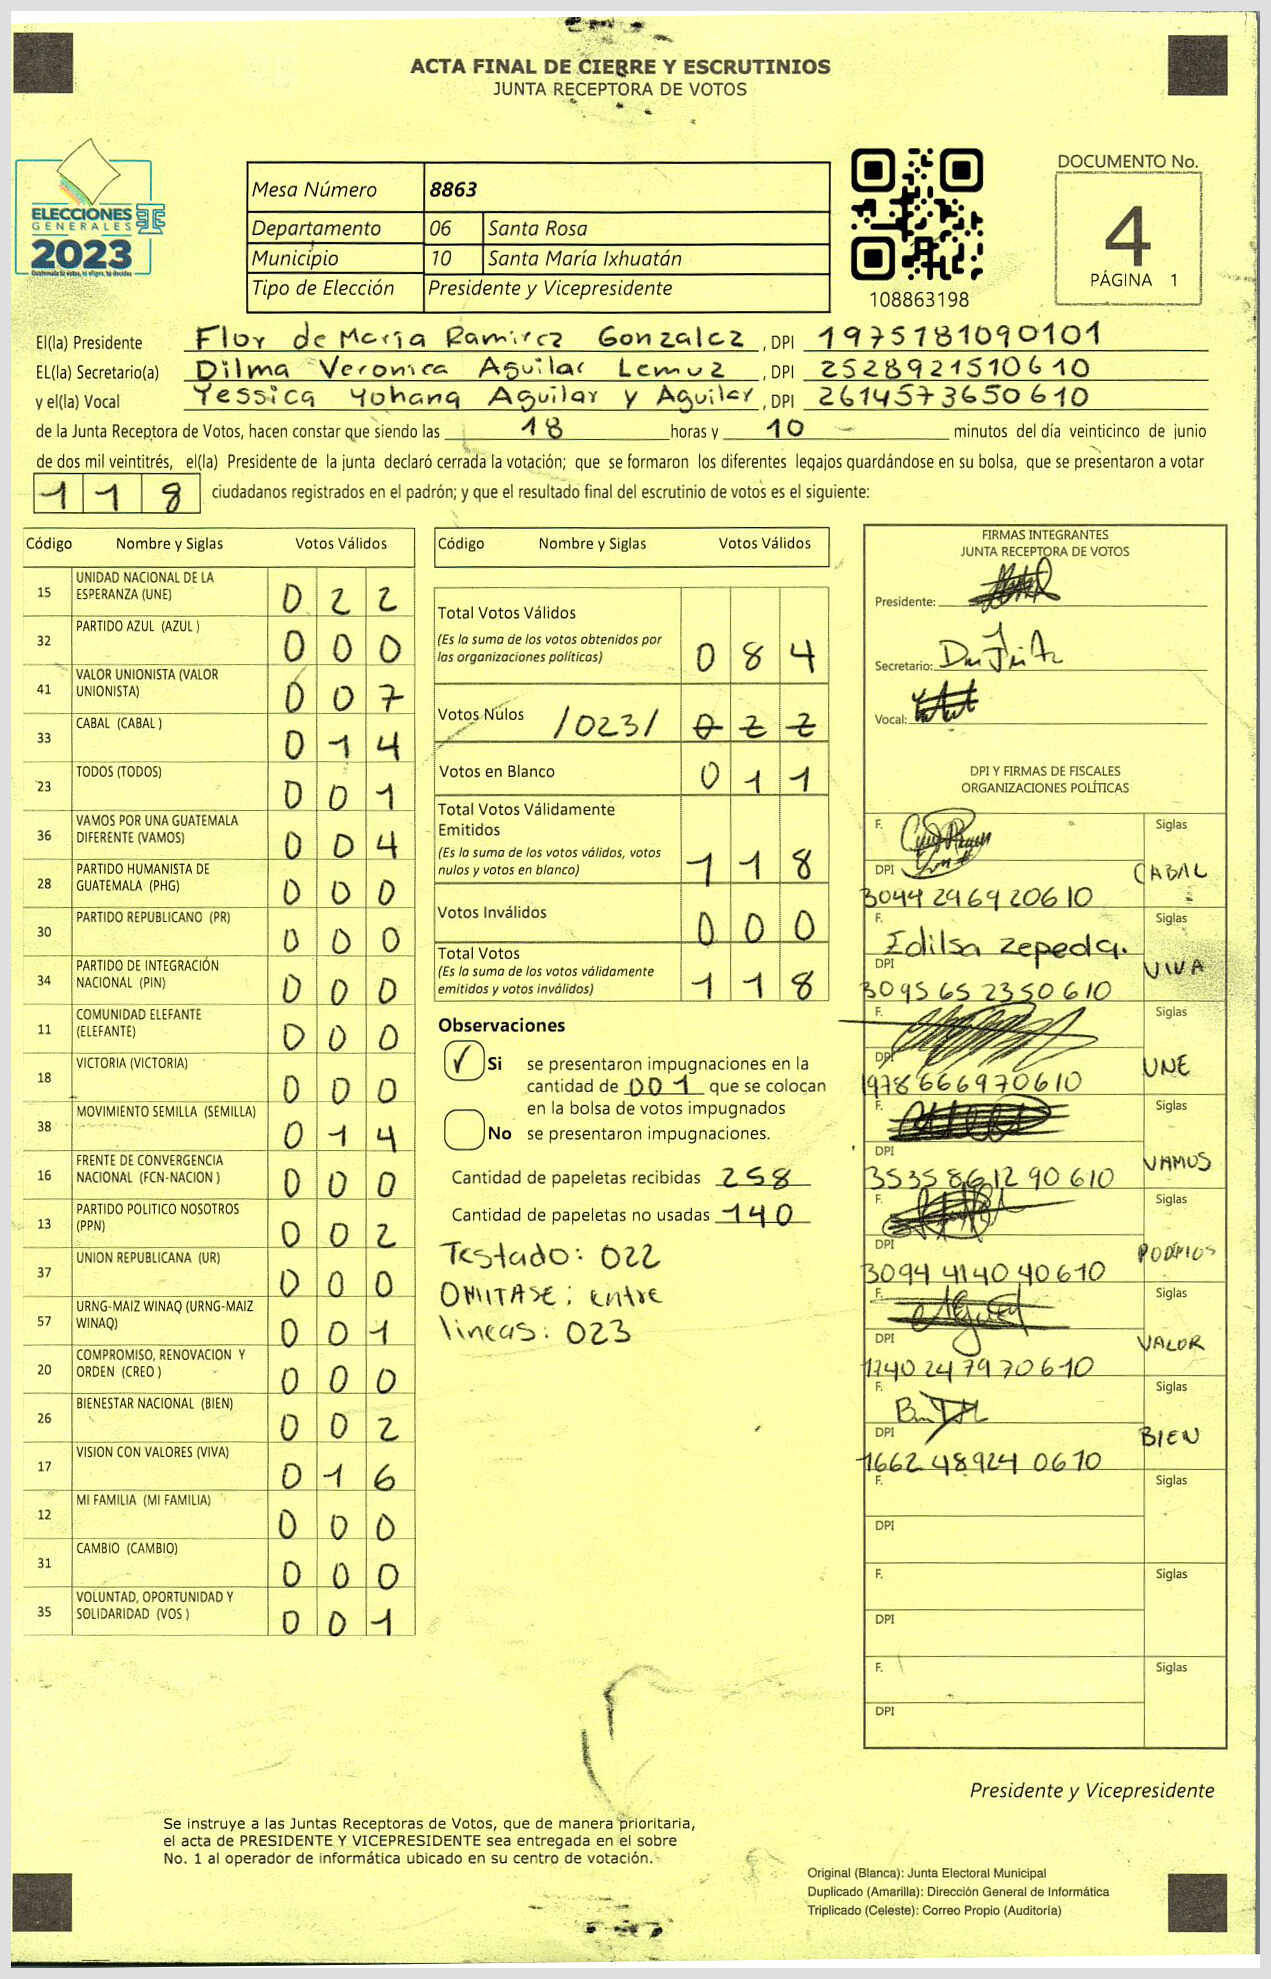 ACTA FINAL DE CIERRE Y ESCRUTINIOS
JUNTA RECEPTORA DE VOTOS
ELECCIONES
GENERALES
2023
Mesa Número 8863
Departamento 06 Santa Rosa
Municipio 10 Santa María Ixhuatán
Tipo de Elección Presidente y Vicepresidente
108863198
DOCUMENTO No.
4
PÁGINA 1
El(la) Presidente Flor de María Ramirez Gonzalez , DPI 1975181090101
EL(la) Secretario(a) Dilma Veronica Aguilar Lemuz , DPI 2528921510610
y el(la) Vocal Yessica Yohana Aguilar y Aguilar , DPI 2614573650610
de la Junta Receptora de Votos, hacen constar que siendo las 18 horas y 10 minutos del día veinticinco de junio
de dos mil veintitrés, el(la) Presidente de la junta declaró cerrada la votación; que se formaron los diferentes legajos guardándose en su bolsa, que se presentaron a votar
118 ciudadanos registrados en el padrón; y que el resultado final del escrutinio de votos es el siguiente:
Código Nombre y Siglas Votos Válidos
15 UNIDAD NACIONAL DE LA
ESPERANZA (UNE) 0 2 2
32 PARTIDO AZUL (AZUL ) 0 0 0
41 VALOR UNIONISTA (VALOR
UNIONISTA) 0 0 7
33 CABAL (CABAL ) 0 1 4
23 TODOS (TODOS) 0 0 1
36 VAMOS POR UNA GUATEMALA
DIFERENTE (VAMOS) 0 0 4
28 PARTIDO HUMANISTA DE
GUATEMALA (PHG) 0 0 0
30 PARTIDO REPUBLICANO (PR) 0 0 0
34 PARTIDO DE INTEGRACIÓN
NACIONAL (PIN) 0 0 0
11 COMUNIDAD ELEFANTE
(ELEFANTE) 0 0 0
18 VICTORIA (VICTORIA) 0 0 0
38 MOVIMIENTO SEMILLA (SEMILLA) 0 1 4
16 FRENTE DE CONVERGENCIA
NACIONAL (FCN-NACION ) 0 0 0
13 PARTIDO POLITICO NOSOTROS
(PPN) 0 0 2
37 UNION REPUBLICANA (UR) 0 0 0
57 URNG-MAIZ WINAQ (URNG-MAIZ
WINAQ) 0 0 1
20 COMPROMISO, RENOVACION Y
ORDEN (CREO ) 0 0 0
26 BIENESTAR NACIONAL (BIEN) 0 0 2
17 VISION CON VALORES (VIVA) 0 1 6
12 MI FAMILIA (MI FAMILIA) 0 0 0
31 CAMBIO (CAMBIO) 0 0 0
35 VOLUNTAD, OPORTUNIDAD Y
SOLIDARIDAD (VOS ) 0 0 1
Código Nombre y Siglas Votos Válidos
Total Votos Válidos
(Es la suma de los votos obtenidos por
las organizaciones políticas) 0 8 4
Votos Nulos /023/ 0 2 2
Votos en Blanco 0 1 1
Total Votos Válidamente
Emitidos
(Es la suma de los votos válidos, votos
nulos y votos en blanco) 1 1 8
Votos Inválidos 0 0 0
Total Votos
(Es la suma de los votos válidamente
emitidos y votos inválidos) 1 1 8
Observaciones
✓ Si se presentaron impugnaciones en la
cantidad de 001 que se colocan
en la bolsa de votos impugnados
No se presentaron impugnaciones.
Cantidad de papeletas recibidas 258
Cantidad de papeletas no usadas 140
Testado: 022
OMITASE; entre
lineas: 023
FIRMAS INTEGRANTES
JUNTA RECEPTORA DE VOTOS
Presidente:
Secretario:
Vocal:
DPI Y FIRMAS DE FISCALES
ORGANIZACIONES POLÍTICAS
F. Siglas
DPI CABAL
3044296920610
F. Edilsa Zepeda. Siglas
DPI VIVA
3095652350610
F. Siglas
DPI UNE
1978666970610
F. Siglas
DPI VAMOS
3535861290610
F. Siglas
DPI PODEMOS
3094414040610
F. Siglas
DPI VALOR
1740247970610
F. Siglas
DPI BIEN
1662489240610
F. Siglas
DPI
F. Siglas
DPI
F. Siglas
DPI
Presidente y Vicepresidente
Se instruye a las Juntas Receptoras de Votos, que de manera prioritaria,
el acta de PRESIDENTE Y VICEPRESIDENTE sea entregada en el sobre
No. 1 al operador de informática ubicado en su centro de votación.
Original (Blanca): Junta Electoral Municipal
Duplicado (Amarilla): Dirección General de Informática
Triplicado (Celeste): Correo Propio (Auditoría)